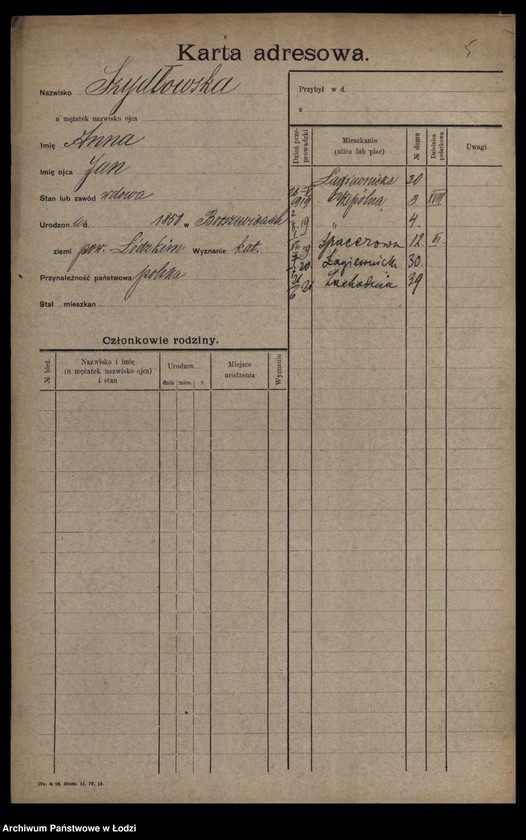 5
Karta adresowa.
Nazwisko Szydłowska
u mężatek nazwisko ojca
Imię Anna
Imię ojca Jan
Stan lub zawód wdowa
Urodzon a d. 1850 w
ziemi pow. Łódzkim Wyznanie kat.
Przynależność państwowa polska
Stał. mieszkan.
Członkowie rodziny.
№ bież.
Nazwisko i imię
(u mężatek nazwisko ojca)
i stan
Urodzon.
dnia mies. r.
Miejsce
urodzenia
Wyznanie
Przybył w d.
z
Dzień prze-
prowadzki
Mieszkanie
(ulica lub plac)
№ domu
Dzielnica
podatkowa
Uwagi
Łagiewnicka 20
1919 Wspólna 3 XVIII
19 " 4.
19 Spacerowa 12. VI.
20 Łagiewnick 30.
21 Zachodnia 39
Archiwum Państwowe w Łodzi